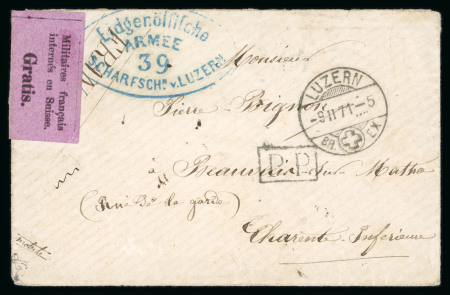 Militaires français
internés en Suisse.
Gratis.
Eidgenössische
ARMEE
39
SCHARFSCH. v. LUZERN
Monsieur
LUZERN
-9 II 71 -5
BR EX
Pierre
P.P.
à Beauvais sur Matha
(Rue de la garde)
Charente Inférieure